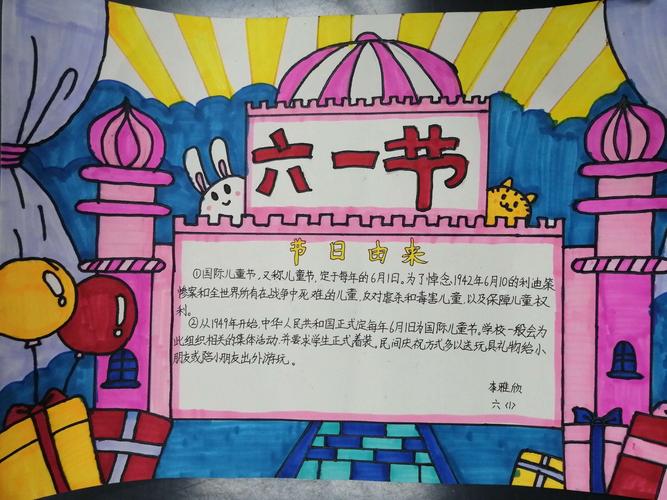 六一节
节日由来
①国际儿童节,又称儿童节,定于每年的6月1日。为了悼念1942年6月10的利迪策
惨案和全世界所有在战争中死难的儿童,反对虐杀和毒害儿童,以及保障儿童权
利。
②从1949年开始,中华人民共和国正式定每年6月1日为国际儿童节。学校一般会为
此组织相关的集体活动,并要求学生正式着装。民间庆祝方式多以送玩具礼物给小
朋友或陪小朋友出外游玩。
李雅欣
六(1)